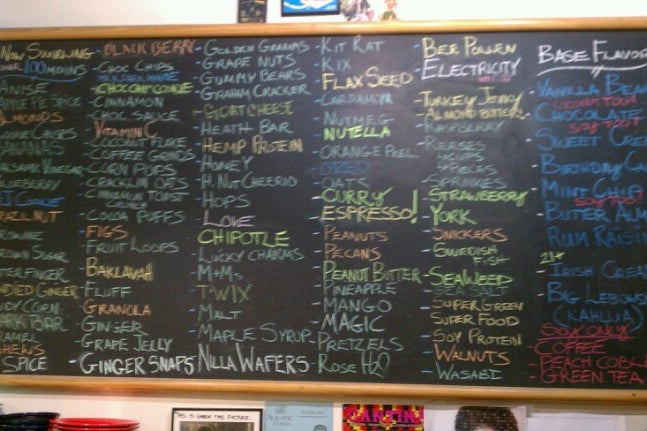 Now Swirling
100 mixins
Anise
Pie Spice
Almonds
Bananas
Vinegar
Brazil Nut
Brownie
Brown Sugar
Butterfinger
Candied Ginger
Candy Corn
Clark Bar
Caramel
Spice
Blackberry
-Choc Chips
-Choc Chip Cookie
-Cinnamon
-Choc Sauce
-Vitamin C
-Coconut Flake
-Coffee Grinds
-Corn Pops
-Cracklin Oats
-Cinnamon Toast
-Cocoa Puffs
-Figs
-Fruit Loops
-Baklavah
-Fluff
-Granola
-Ginger
-Grape Jelly
-Ginger Snaps
-Golden Grahams
-Grape Nuts
-Gummy Bears
-Graham Cracker
-Goat Cheese
-Heath Bar
-Hemp Protein
-Honey
-H. Nut Cheerio
-Hops
-Love
Chipotle
-Lucky Charms
-M+Ms
-Twix
-Malt
-Maple Syrup
-Nilla Wafers
-Kit Kat
-Kix
Flax Seed
-Cardamon
-Nutmeg
Nutella
-Orange Peel
-Oreo
-Oats
-Curry
-Espresso!
-Peanuts
-Pecans
-Peanut Butter
-Pineapple
-Mango
-Magic
-Pretzels
-Rose H2O
-Bee Pollen
-Electricity
-Turkey Jerky
-Almond Butter
-Raspberry
-Reeses
-Cups
-Pieces
-Sprinkles
-Strawberry
-York
-Snickers
-Swedish Fish
-Seaweed
-Sea Salt
-Super Green
-Super Food
-Soy Protein
-Walnuts
-Wasabi
Base Flavor
-Vanilla Bean
Coconut Too!!
-Chocolate
Soy Too!!
-Sweet Crea
-Birthday Ca
-Mint Chip
Soy Too!!
-Butter Alm
-Rum Raisin
21+
-Irish Crea
-Big Lebows
(Kahlua)
Soy Only
-Coffee
-Peach Cobl
-Green Tea
This is under this picture...